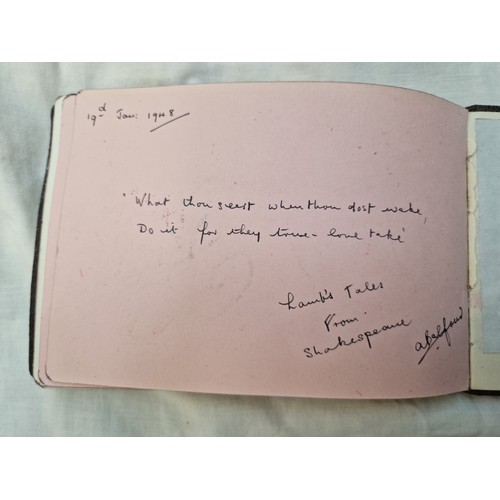 19d Jan: 1948
"What thou seest when thou dost wake,
Do it for thy true-love take"
Lamb's Tales
From
Shakespeare